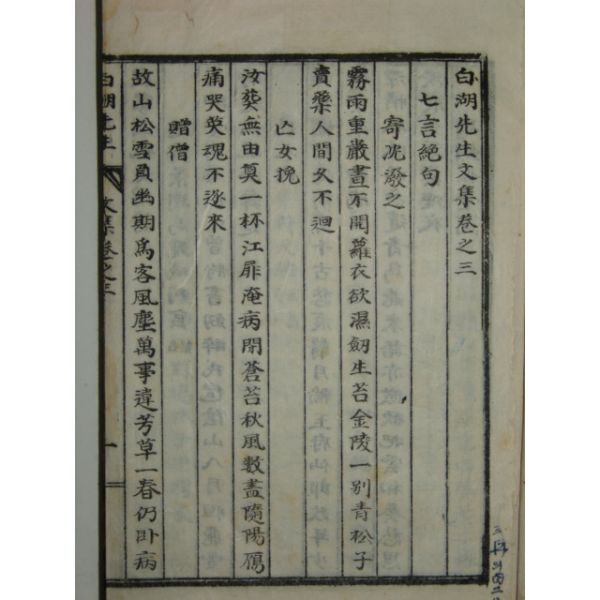 白湖先生文集卷之三
七言絶句
寄沈潑之
霧雨重巖晝不開蘿衣欲濕劒生苔金陵一別青松子
賣藥人間久不迴
亡女挽
汝葬無由奠一杯江扉淹病閉蒼苔秋風數盡隨陽鴈
痛哭英魂不逐來
贈僧
故山松雪負幽期爲客風塵萬事違芳草一春仍臥病
白湖先生 文集卷之三 一